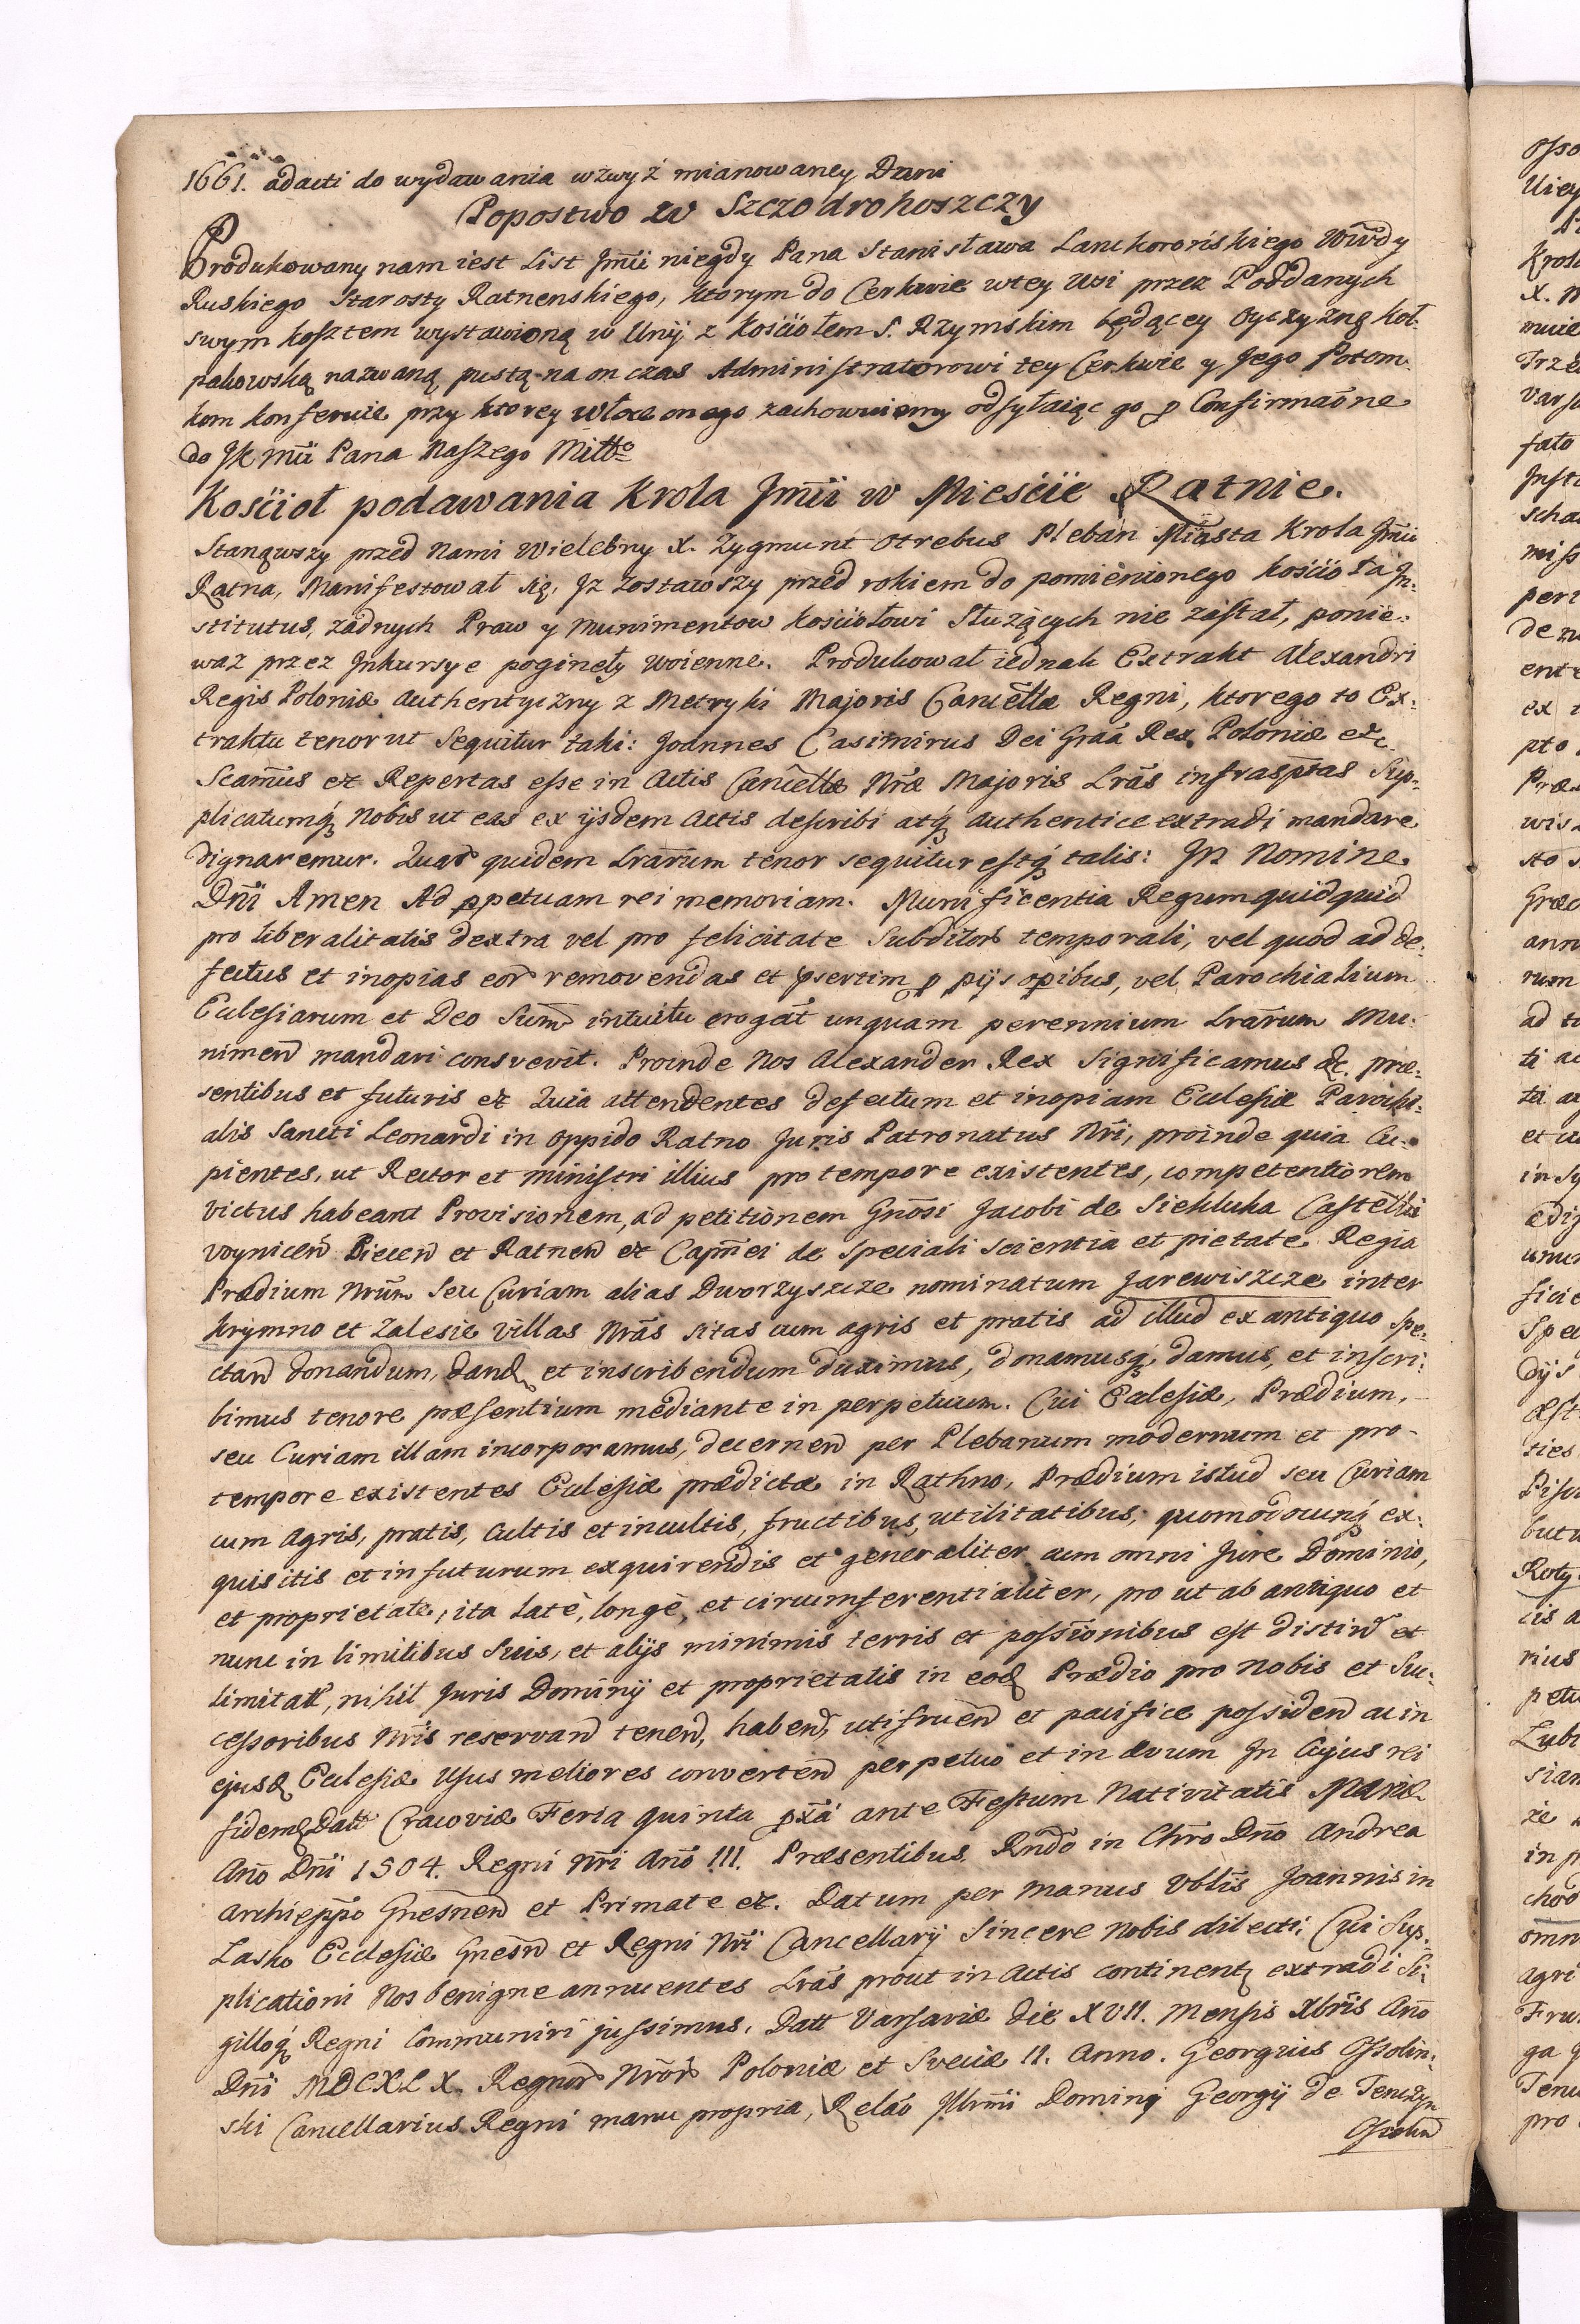 1661. adacti do wydawania wzwyż mianowaney Dani
Popostwo w Szczodrohoszczy
Produkowany nam iest List Jmći niegdy Pana Stanisława Lanckorońskiego Wwdy
Ruskiego Starosty Ratnenskiego, ktorym do Cerkwie wtey Wsi przez Poddanych
swym kosztem wystawioną w Unij z Kościołem S. Rzymskim będącey Oyczyzną Koł-
pakowską nazwaną pustą na on czas Administratorowi tey Cerkwie y Jego Potom-
kom konferuie przy ktorey włoce onego zachowuiemy odsyłaiąc go p Confirmaõne
do JK Mći Pana Naszego Miłłº
Kościoł podawania Krola Jmći w Mieście Ratnie.
Stanąwszy przed Nami Wielebny X. Zygmunt Otrebus Pleban Miasta Krola Jmći
Ratna, Manifestował się, Jz zostawszy przed rokiem do pomienionego Kościoła Jn-
stitutus, żadnych Praw y Munimentow Kościołowi Służących nie zastał, ponie-
waz przez Jnkursye poginęły Woienne. Produkował iednak Extrakt Alexandri
Regis Poloniæ Authentyczny z Metryki Majoris Cancellæ Regni, ktorego to Ex-
traktu tenor ut Sequitur taki: Joannes Casimirus Dei Graã Rex Poloniæ etc.
Scamus et Repertas esse in Actis Cancellæ Nræ Majoris Lrãs infrasptas Sup-
plicatumq Nobis ut eas ex ijsdem Actis describi atq authentice extradi mandare
dignaremur. Quar quidem Lrãrum tenor sequitur estq talis: Jn Nomine
Dñi Amen Ad ppetuam rei memoriam. Munificentia Regum quidquid
pro liberalitatis dextra vel pro felicitate Subditor temporali, vel quod ad de-
fectus et inopias eor removendas et psertim p pijs opibus, vel Parochialium
Eclesiarum et Deo Sum intuitu erogat unquam perennium Lrãrum Mu-
nimen mandari consvevit. Proinde Nos Alexander Rex Significamus &c. præ-
sentibus et futuris et Quia attendentes defectum et inopiam Eclesiæ Parochi-
alis Sancti Leonardi in Oppido Ratno Juris Patronatus Nri, proinde quia Cu-
pientes, ut Rector et Ministri illius pro tempore existentes, competentiorem
victus habeant Provisionem, ad petitionem Gnosi Jacobi de Siekluka Castelli
voynicen Biecen et Ratnen et Capnei de speciali scientia et pietate Regia
Prædium Nrum Seu Curiam alias Dworzyszcze nominatum Jarewiszcze inter
Krymno et Zalesie villas Nrãs sitas cum agris et pratis ad illud ex antiquo Spe-
ctan donandum, dand et inscribendum duximus, donamusq, damus, et inscri-
bimus tenore præsentium mediante in perpetuum. Cui Eclesiæ, Prædium,
seu Curiam illam incorporamus, decernen per Plebanum modernum et pro-
tempore existentes Eclesiæ prædictæ in Rathno, Prædium istud seu Curiam
cum Agris, pratis, Cultis et incultis, fructibus, utilitatibus, quomodocunq ex-
quisitis et in futurum exquirendis et generaliter cum omni Jure Dominio,
et proprietate, ita latè, longè, et circumferentialiter, pro ut ab antiquo et
nunc in limitibus Suis, et alijs minimis terris et possionibus est distin et
limitatt, nihil Juris Dominij et proprietatis in eod Prædio pro Nobis et Suc-
cessoribus Nris reservan tenen, haben, utifruen et pacifice possiden ac in
ejusd Eclesiæ Usus meliores converten perpetuo et in ævum Jn Cujus rei
fidem Datt Cracoviæ Feria quinta pxã ante Festum Nativitatis Mariæ
Año Dñi 1504. Regni Nri Año III. Præsentibus Rndo in Chro Dño Andrea
Archieppo Gnesnen et Primate et. Datum per Manus Vblis Joannis in
Lasko Ecclesiæ Gnesn et Regni Nri Cancellarij Sincere Nobis dilecti, Cui Sup-
plicationi Nos benigne annuentes Lrãs prout in Actis continent extradi Si-
gilloq Regni Communiri jussimus. Datt Varsaviæ die XVII. Mensis Xbris Año
Dñi MDCXLX. Regnor Nror Poloniæ et Sveciæ II. Anno. Georgius Ossolin-
ski Cancellarius Regni manu propria, Relão Jllrmi Dominij Georgij de Tenczyn
Ossolin